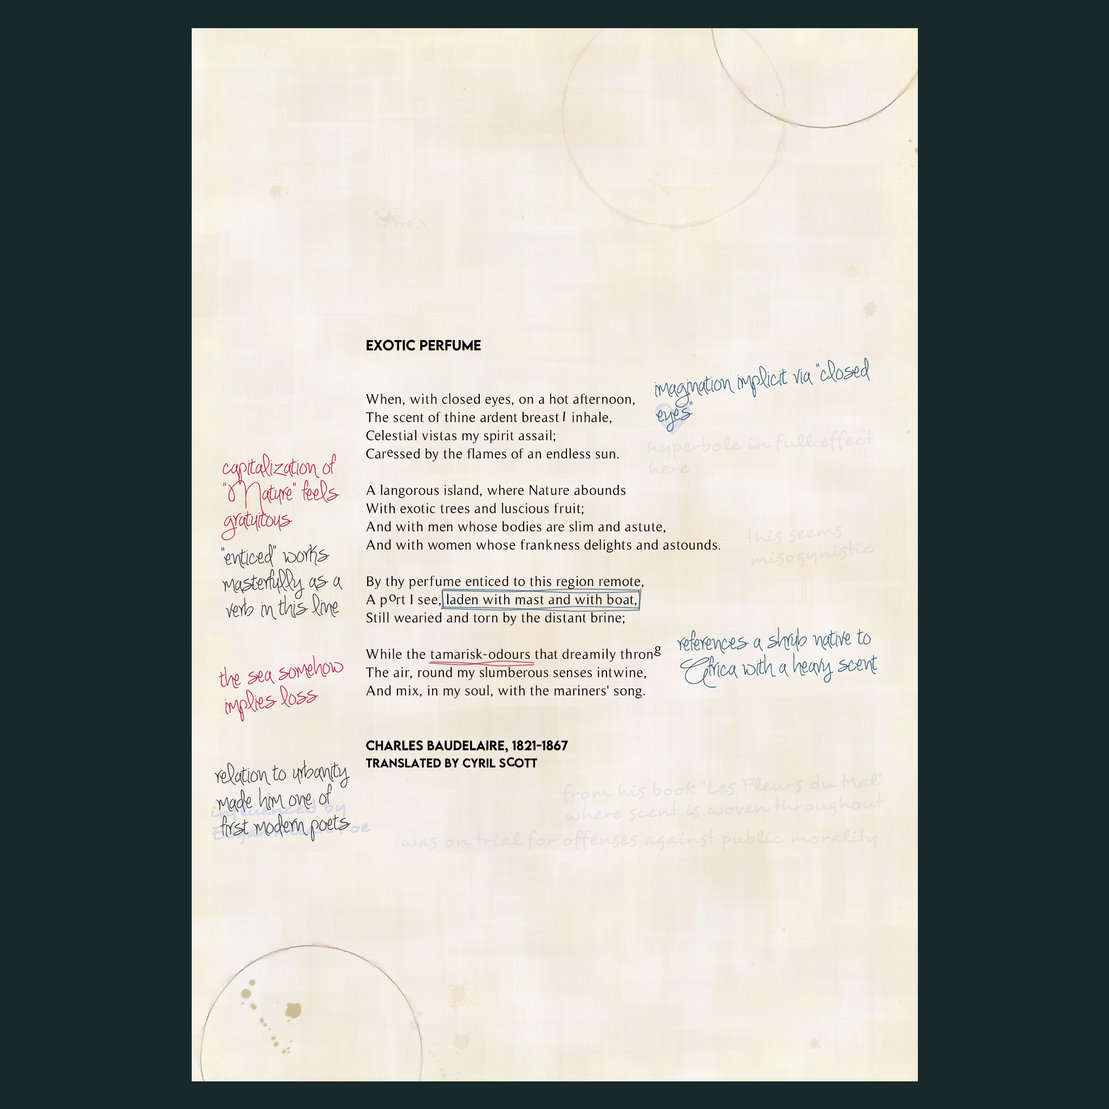 EXOTIC PERFUME
When, with closed eyes, on a hot afternoon,
The scent of thine ardent breast I inhale,
Celestial vistas my spirit assail;
Caressed by the flames of an endless sun.
A langorous island, where Nature abounds
With exotic trees and luscious fruit;
And with men whose bodies are slim and astute,
And with women whose frankness delights and astounds.
By thy perfume enticed to this region remote,
A port I see, laden with mast and with boat,
Still wearied and torn by the distant brine;
While the tamarisk-odours that dreamily throng
The air, round my slumberous senses intwine,
And mix, in my soul, with the mariners' song.
CHARLES BAUDELAIRE, 1821-1867
TRANSLATED BY CYRIL SCOTT
imagination implicit via "closed
eyes"
hyperbole in full effect
here
capitalization of
"Nature" feels
gratuitous
"enticed" works
masterfully as a
verb in this line
this seems
misogynistic
references a shrub native to
Africa with a heavy scent
the sea somehow
implies loss
relation to urbanity
made him one of
first modern poets
influenced by
from his book "Les Fleurs du Mal"
where scent is woven throughout
was on trial for offenses against public morality